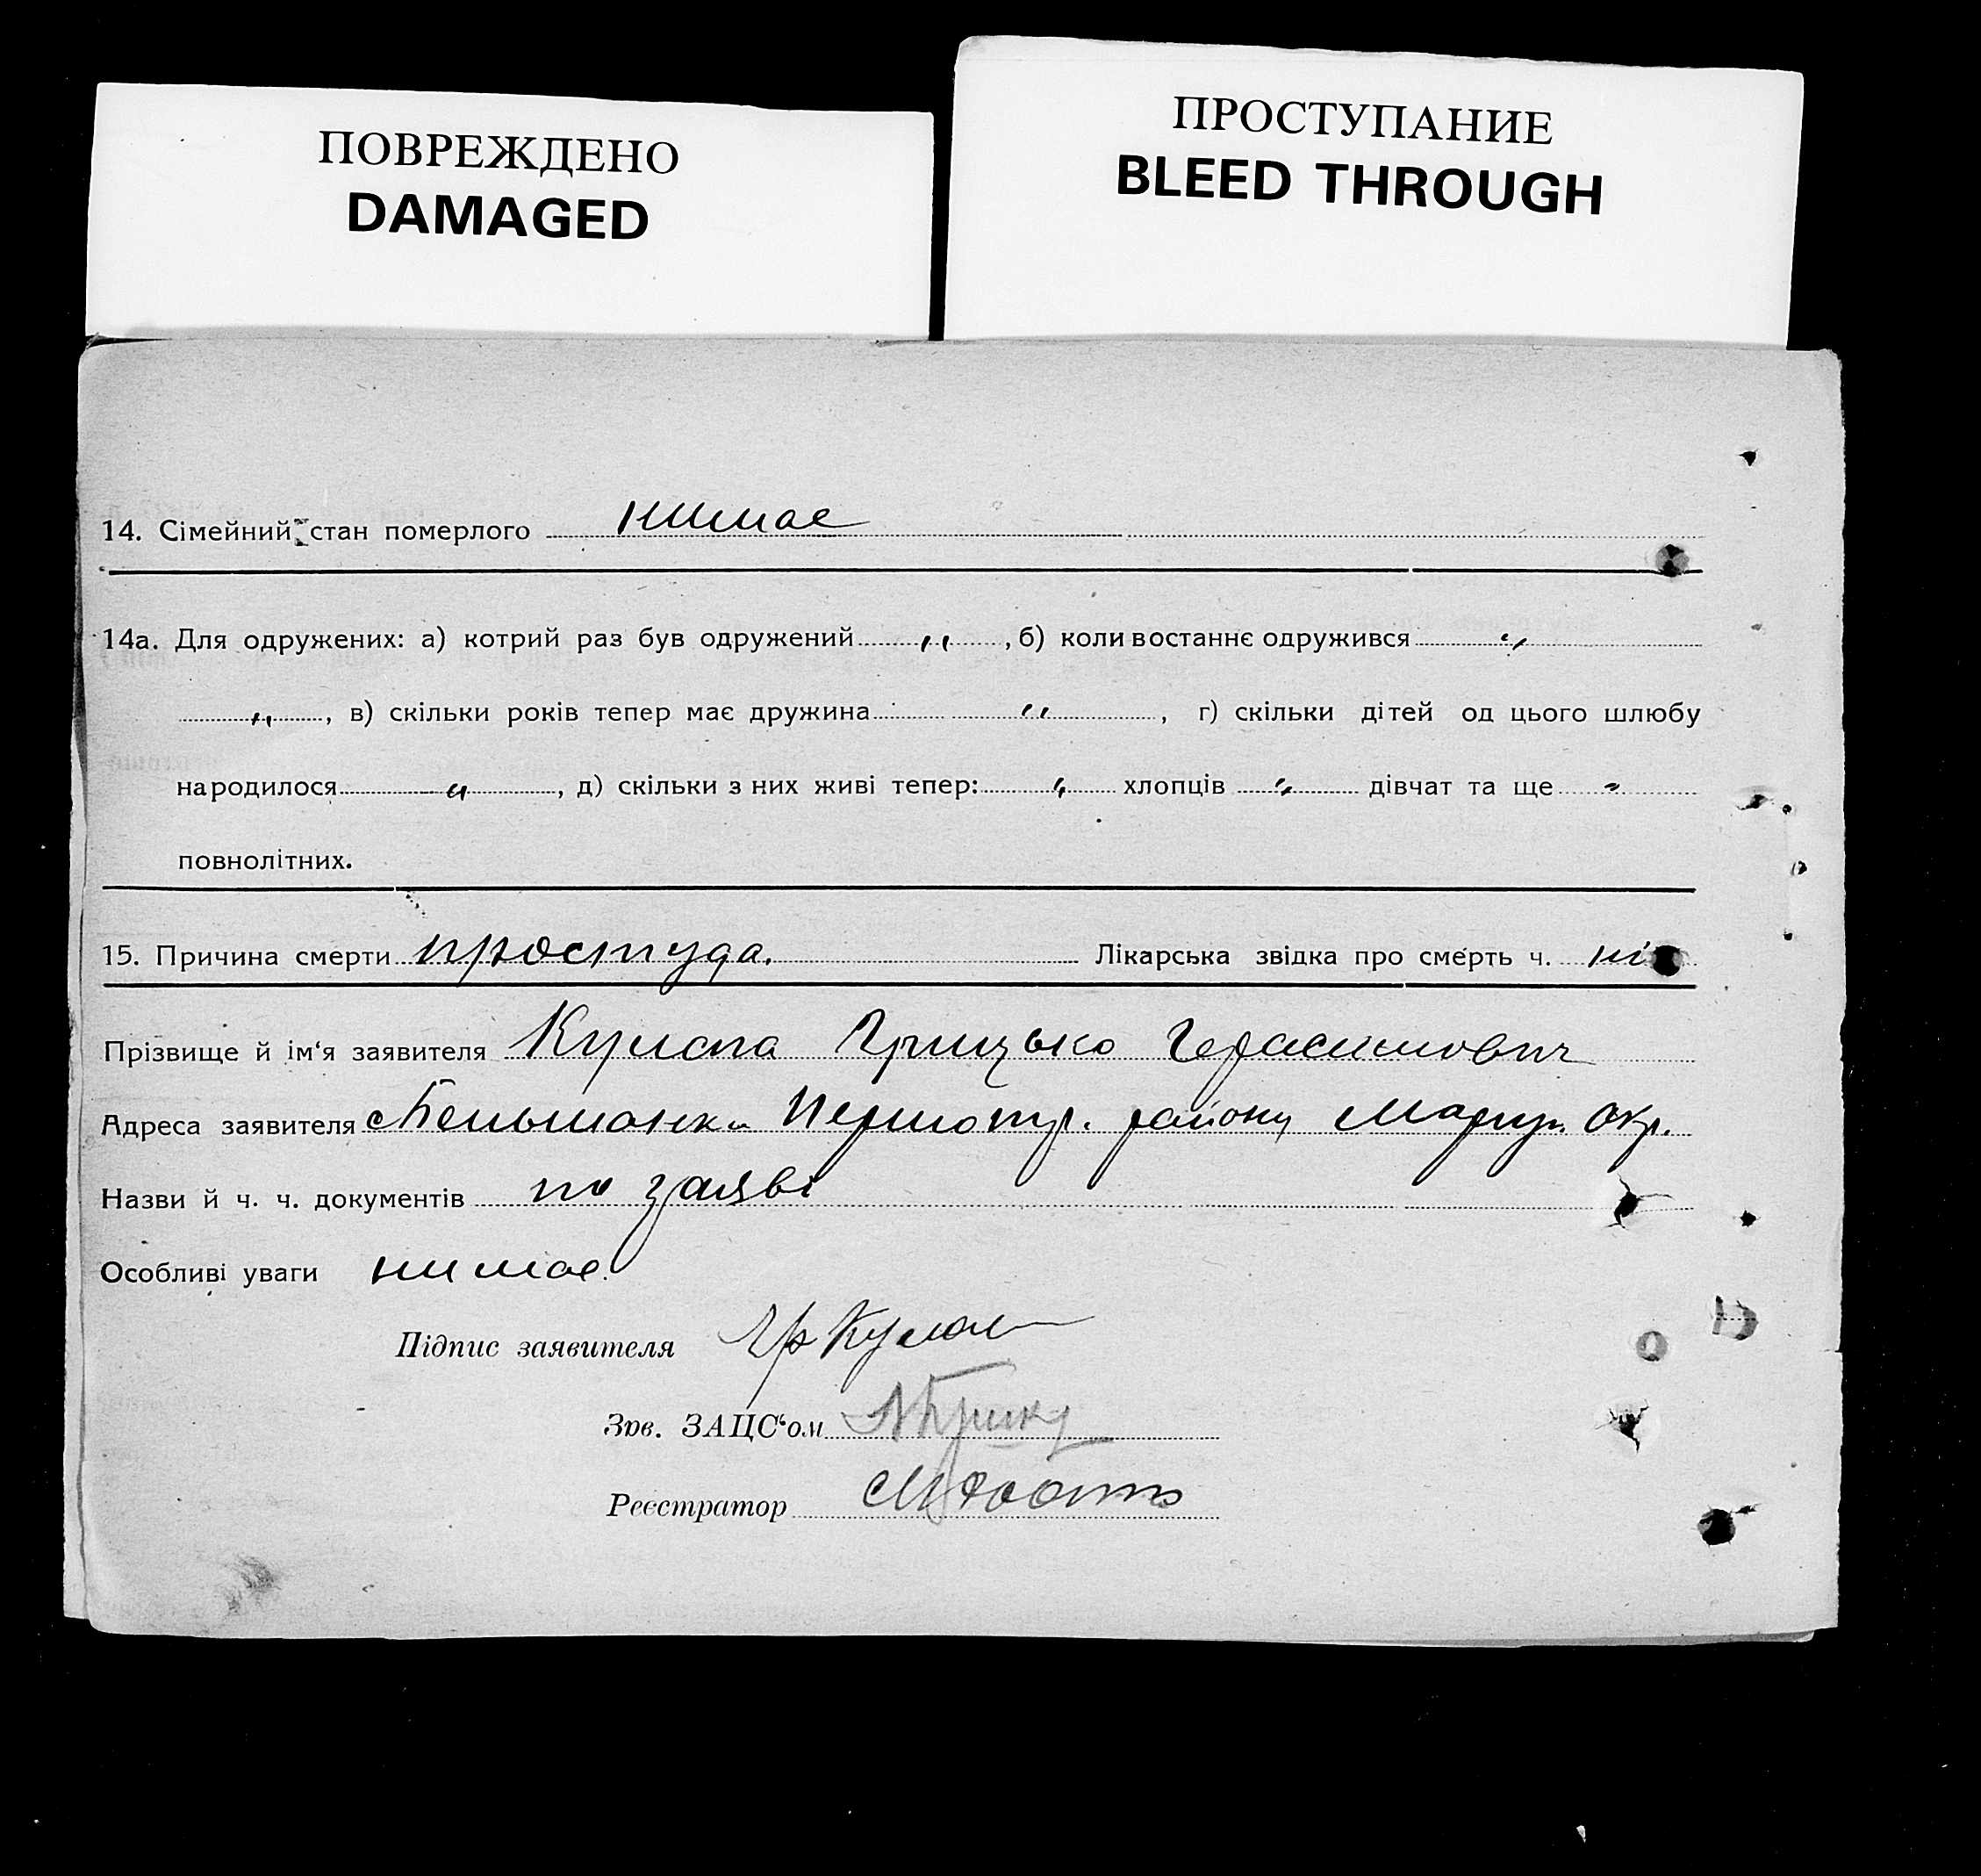 ПОВРЕЖДЕНО
DAMAGED
ПРОСТУПАНИЕ
BLEED THROUGH
14. Сімейний стан померлого нимає
14а. Для одружених: а) котрий раз був одружений " , б) коли востаннє одружився "
" , в) скільки років тепер має дружина " , г) скільки дітей од цього шлюбу
народилося " , д) скільки з них живі тепер: " хлопців " дівчат та ще "
повнолітних.
15. Причина смерти простуда. Лікарська звідка про смерть ч. ні
Прізвище й ім‘я заявителя Грицько Герасимович
Адреса заявителя району Маріуп. Окр.
Назви й ч. ч. документів по заяві
Особливі уваги нимає.
Підпис заявителя Гр
Зав. ЗАЦС‘ом
Реєстратор